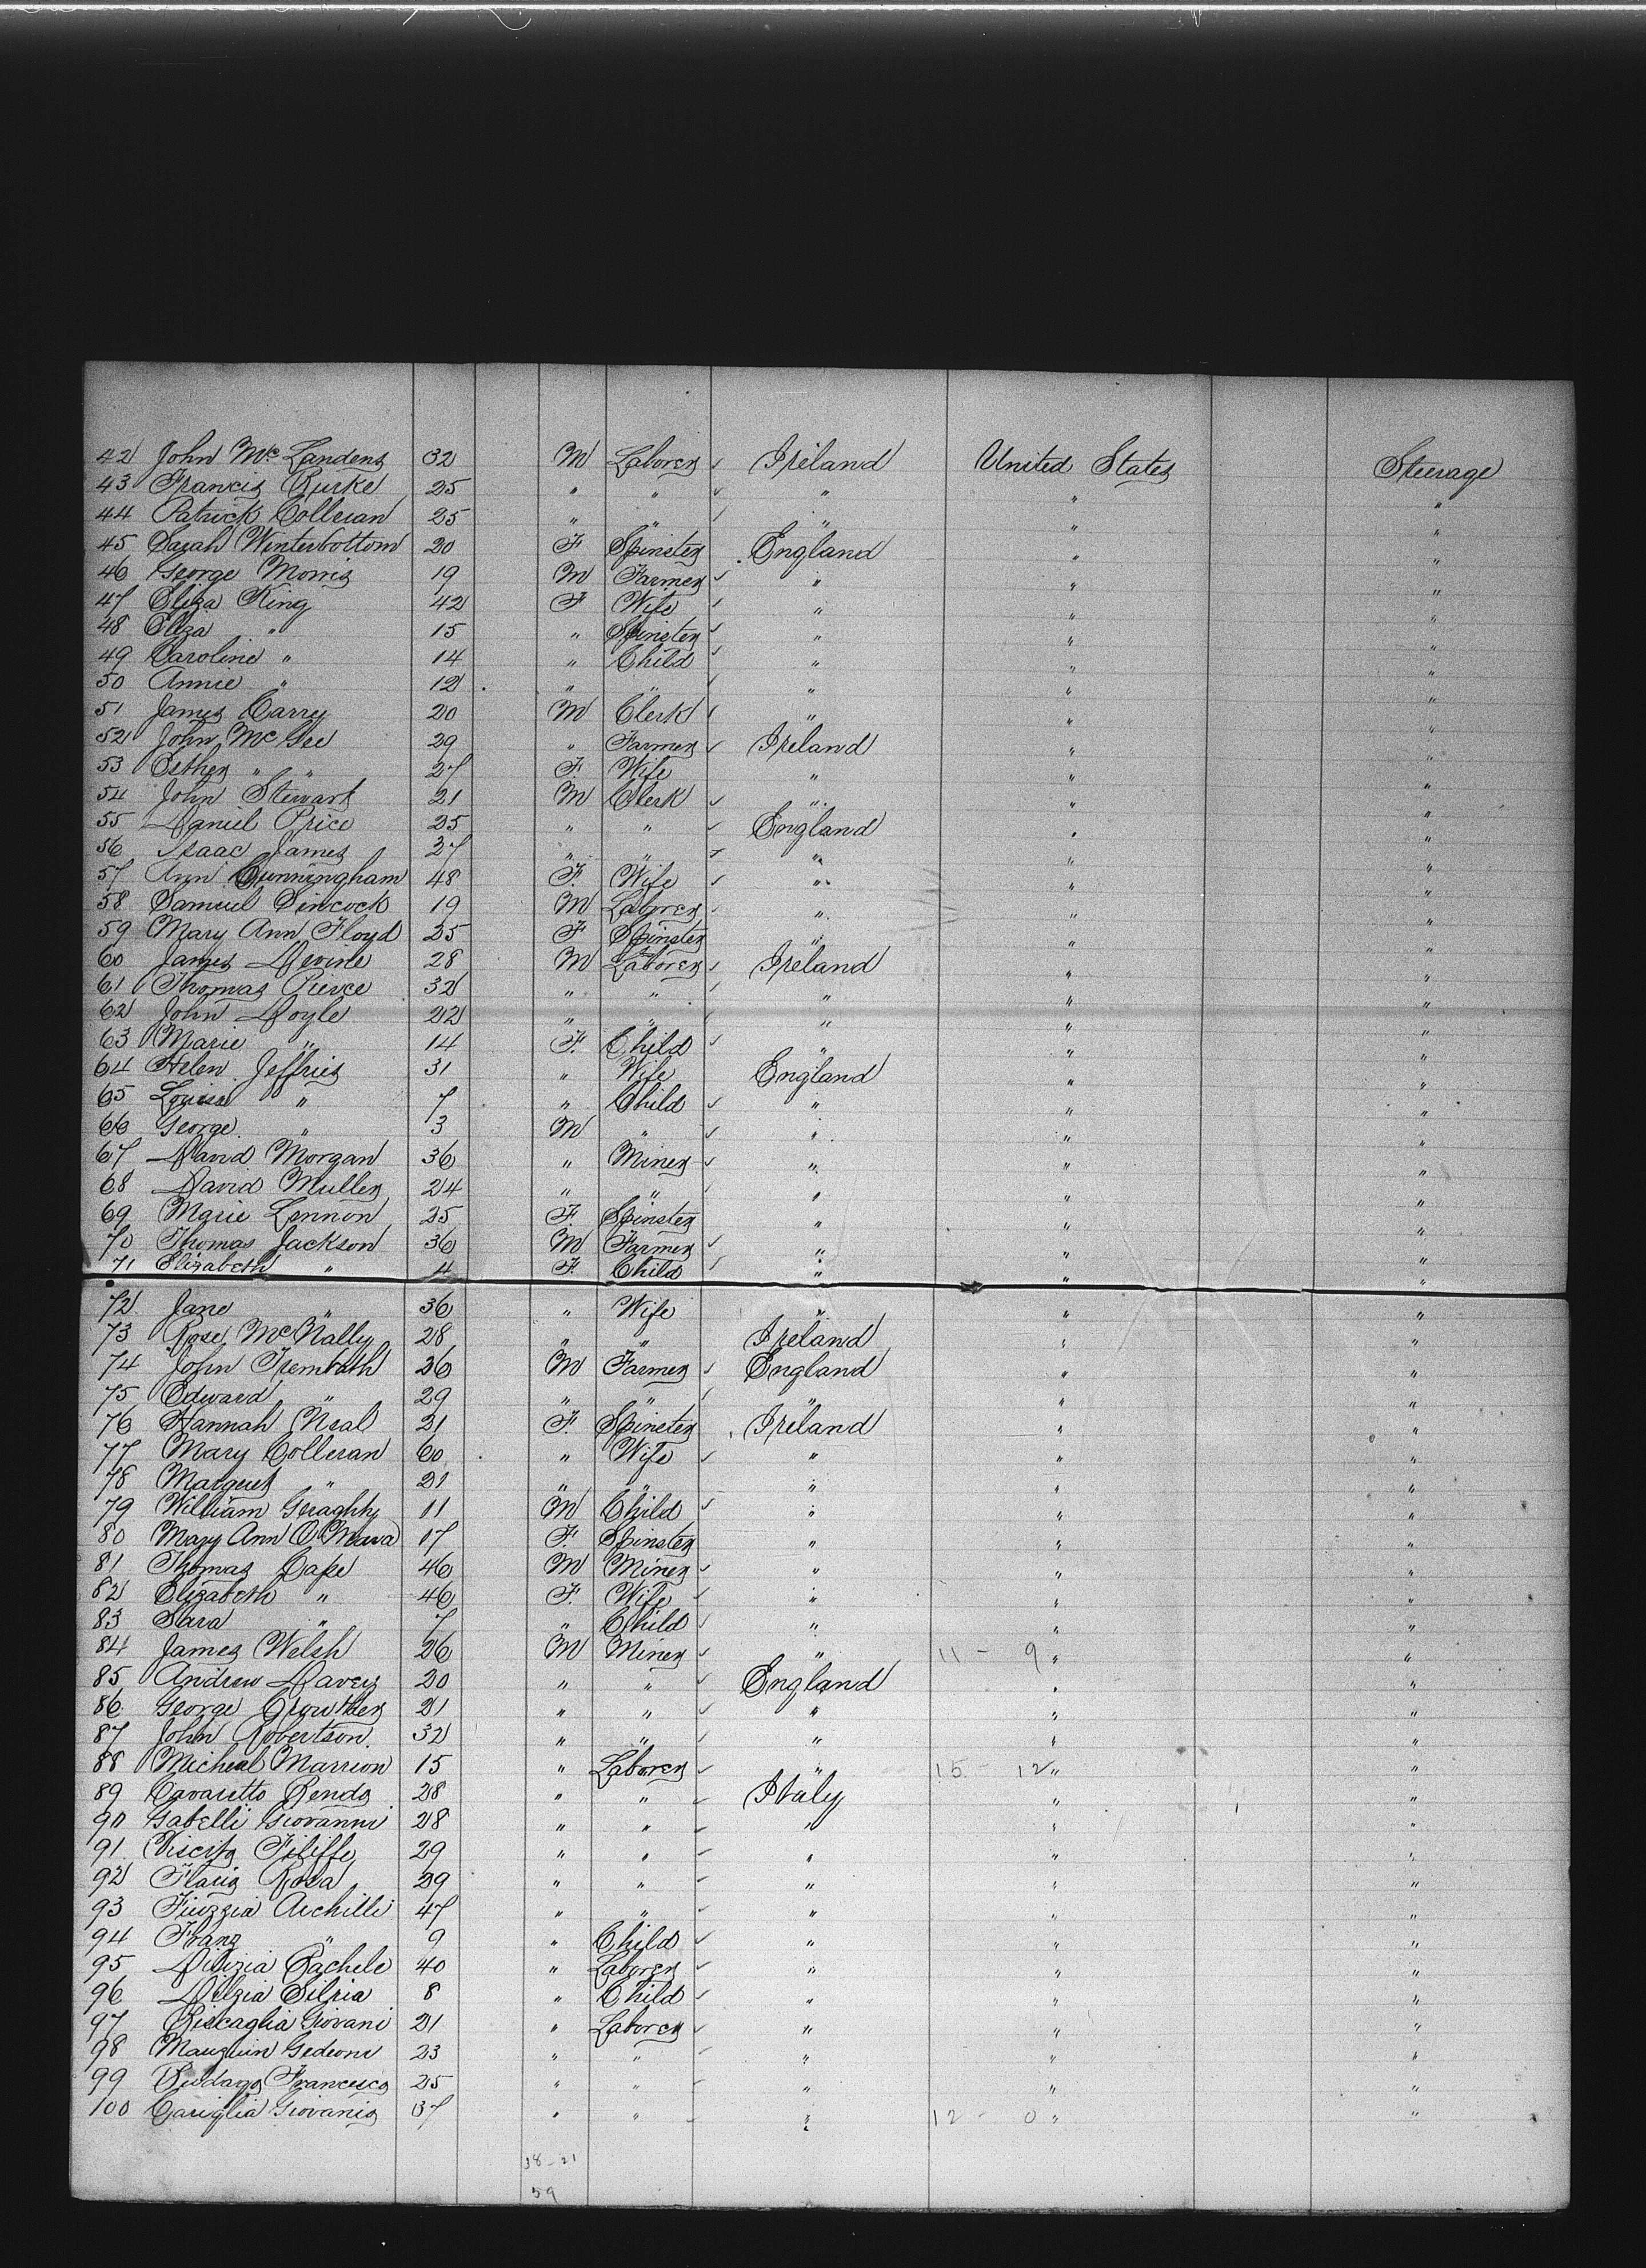 42 John Mc Landers 32 M Laborer Ireland United States Steerage
43 Francis Burke 25 " " " " "
44 Patrick Colleran 25 " " " " "
45 Sarah Winterbottom 20 F Spinster England " "
46 George Morris 19 M Farmer " " "
47 Eliza King 42 F Wife " " "
48 Eliza " 15 " Spinster " " "
49 Caroline " 14 " Child " " "
50 Annie " 12 " " " " "
51 James Carry 20 M Clerk " " "
52 John McGee 29 " Farmer Ireland " "
53 Esther " " 27 F. Wife " " "
54 John Stewart 21 M Clerk " " "
55 Daniel Price 25 " " England " "
56 Isaac James 27 " " " " "
57 Ann Cunningham 48 F. Wife " " "
58 Samuel Sincock 19 M Laborer " " "
59 Mary Ann Floyd 25 F Spinster " " "
60 James Devine 28 M Laborer Ireland " "
61 Thomas Pierce 32 " " " " "
62 John Doyle 22 " " " " "
63 Marie " 14 F. Child " " "
64 Helen Jeffries 31 " Wife England " "
65 Louisa " 7 " Child " " "
66 George " 3 M " " " "
67 David Morgan 36 " Miner " " "
68 David Muller 24 " " " " "
69 Marie Lennon 25 F. Spinster " " "
70 Thomas Jackson 36 M Farmer " " "
71 Elizabeth " 4 F. Child " " "
72 Jane " 36 " Wife " " "
73 Rose McNally 28 " " Ireland " "
74 John Trembath 26 M Farmer England " "
75 Edward " 29 " " " " "
76 Hannah Neal 21 F. Spinster Ireland " "
77 Mary Colleran 60 " Wife " " "
78 Margaret " 21 " " " " "
79 William Geraghty 11 M Child " " "
80 Mary Ann O'Mara 17 F. Spinster " " "
81 Thomas Cape 46 M Miner " " "
82 Elizabeth " 46 F. Wife " " "
83 Sara " 7 " Child " " "
84 James Welsh 26 M Miner " 11 - 9 " "
85 Andrew Davey 20 " " England " "
86 George Crowther 21 " " " " "
87 John Robertson 32 " " " " "
88 Micheal Marrion 15 " Laborer " 15 - 12 " "
89 Cavasetto 28 " " Italy " "
90 Gabelli Giovanni 28 " " " " "
91 29 " " " " "
92 Rosa 29 " " " " "
93 Archilli 47 " " " " "
94 Franz " 9 " Child " " "
95 Rachele 40 " Laborer " " "
96 8 " Child " " "
97 Biscaglia Giovani 21 " Laborer " " "
98 Gedeone 23 " " " " "
99 Francesco 25 " " " " "
100 Cariglia 37 " " " 12 - 0 " "
38 - 21
59